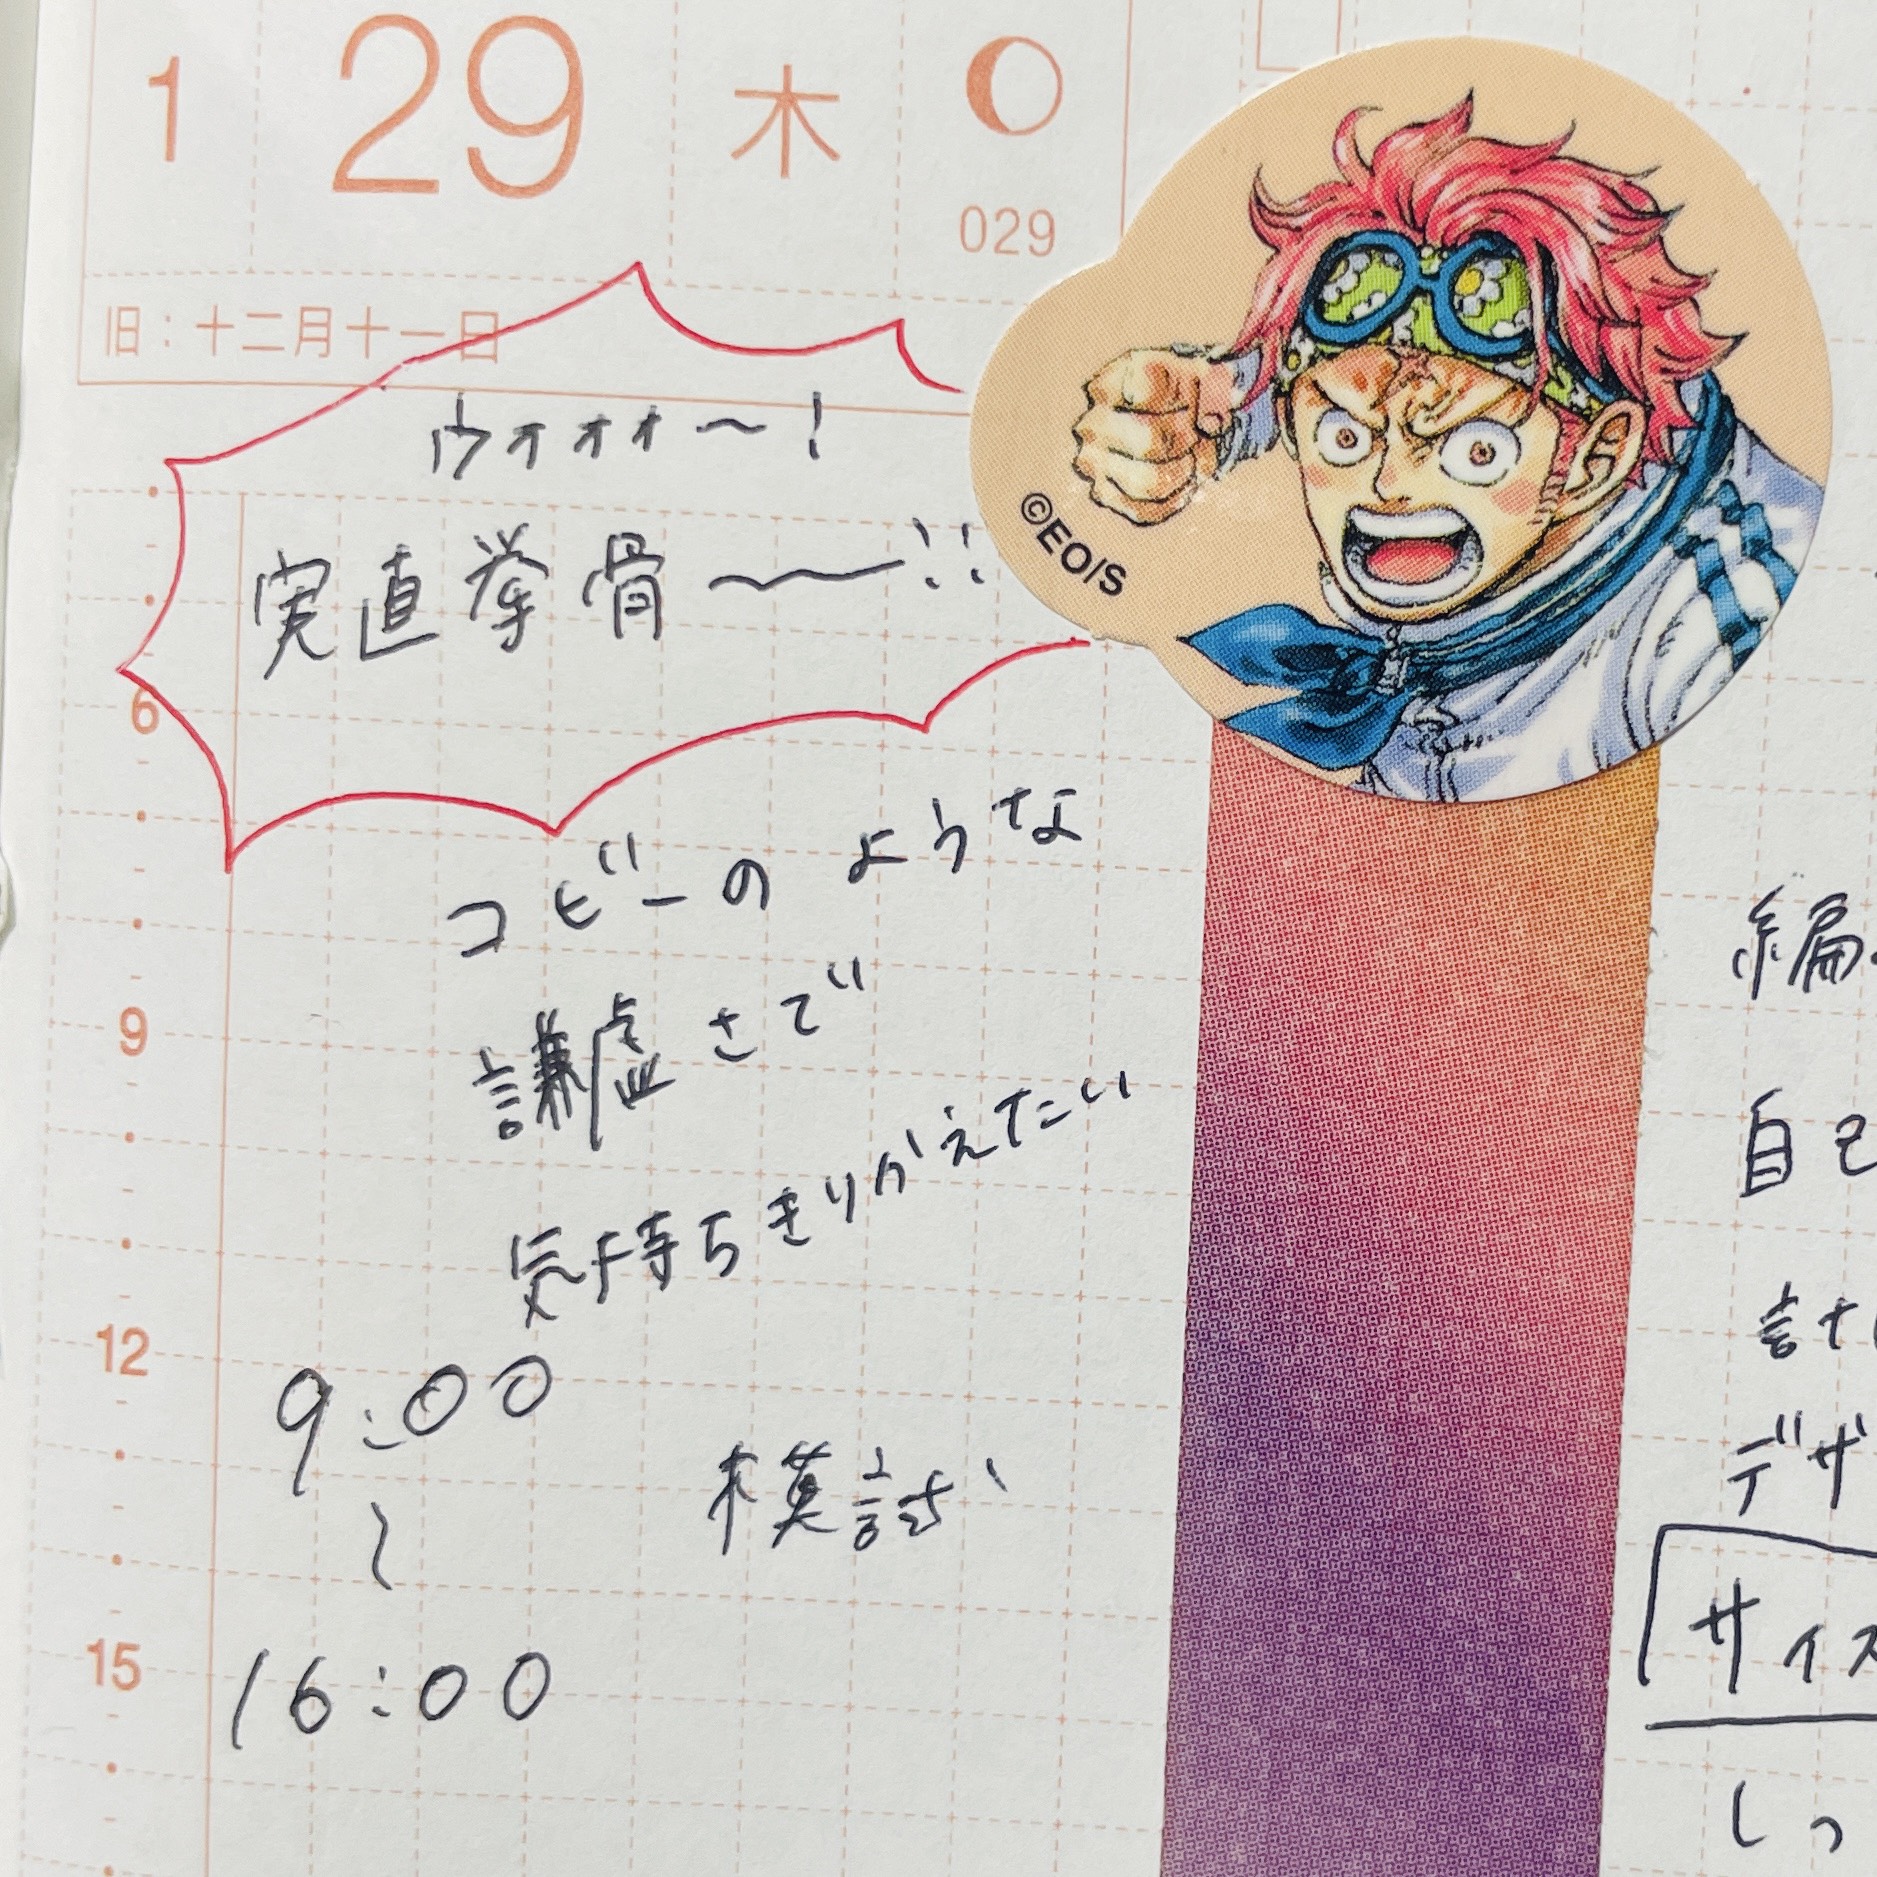 1 29 木
029
旧：十二月十一日
ウォォォ〜！
実直拳骨〜〜!!
©EO/S
コビーのような
謙虚さで
気持ちきりかえたい
6
9
12
15
9:00
〜
16:00
模試
編
自己
討
デザ
サイズ
しっ